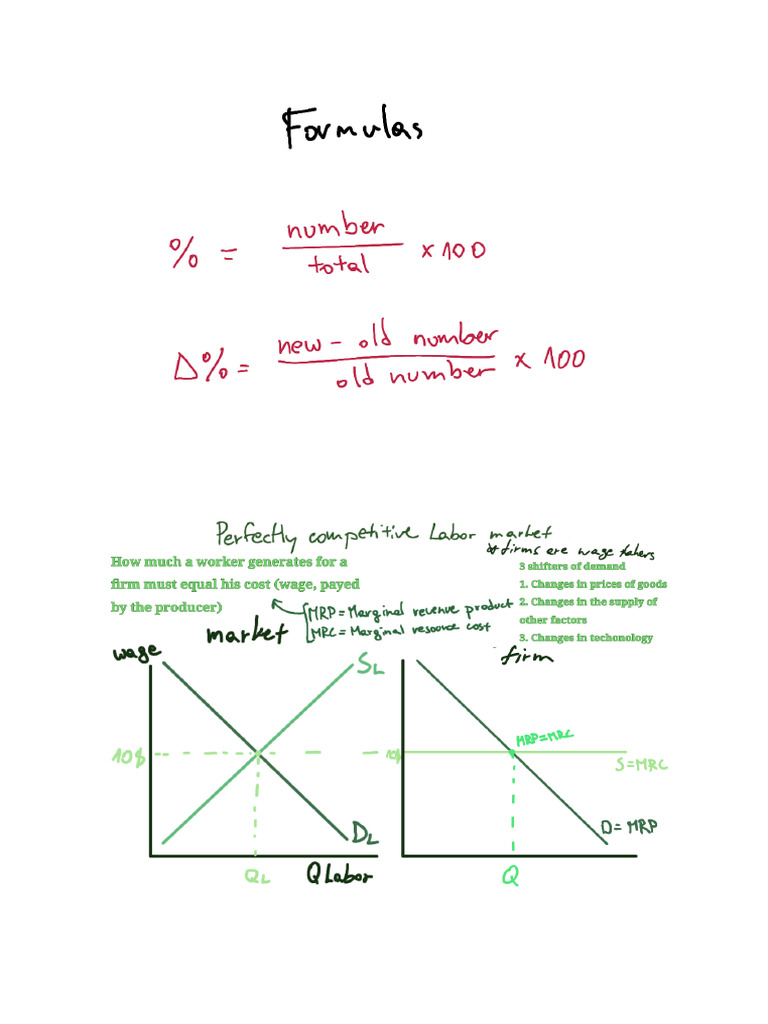 Formulas
% = number / total × 100
Δ% = new - old number / old number × 100
Perfectly competitive Labor market
* firms are wage takers
How much a worker generates for a
firm must equal his cost (wage, payed
by the producer)
3 shifters of demand
1. Changes in prices of goods
2. Changes in the supply of
other factors
3. Changes in techonology
MRP = Marginal revenue product
MRC = Marginal resource cost
market
firm
wage
SL
10$
DL
QL
Q Labor
10$
MRP=MRC
S=MRC
D=MRP
Q